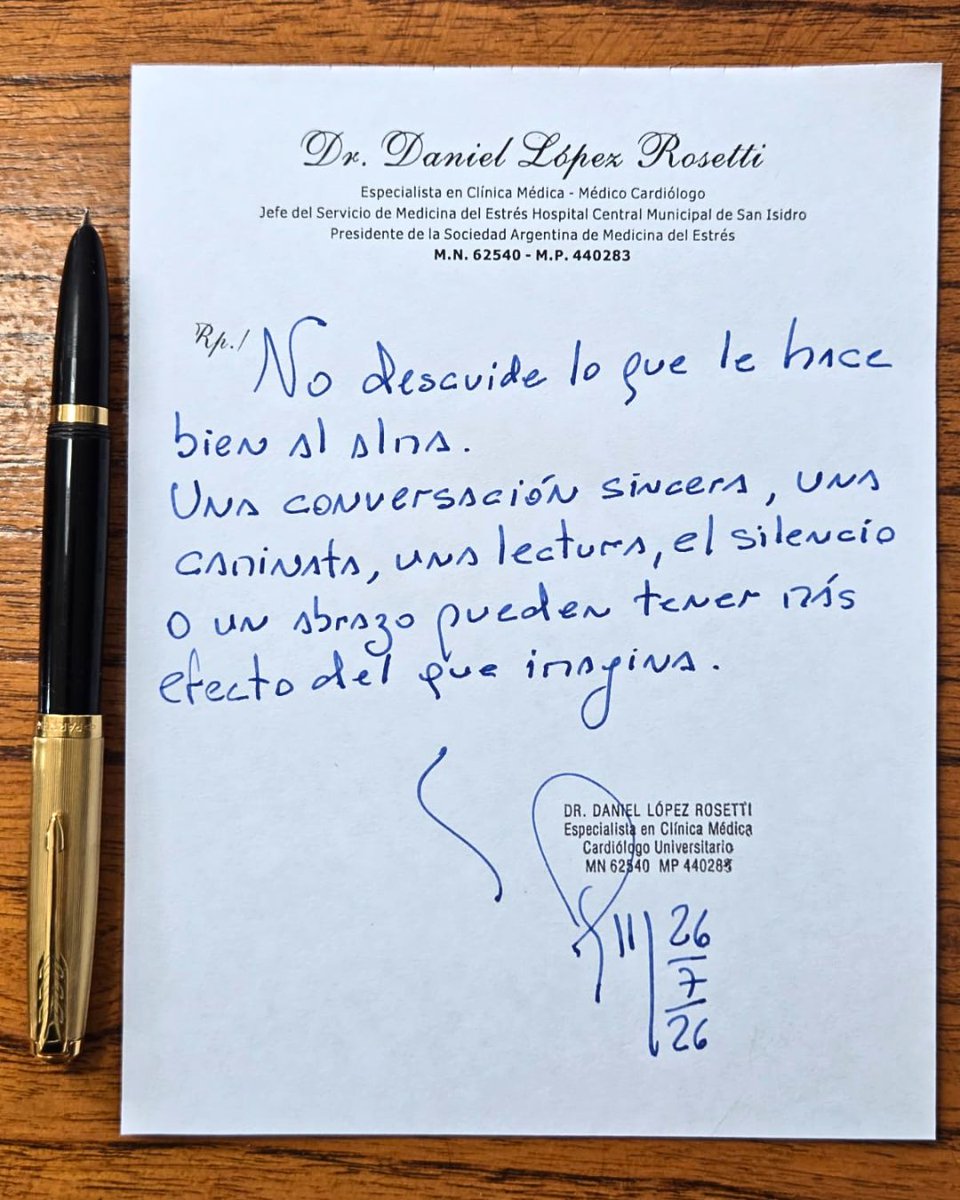 Dr. Daniel López Rosetti
Especialista en Clínica Médica - Médico Cardiólogo
Jefe del Servicio de Medicina del Estrés Hospital Central Municipal de San Isidro
Presidente de la Sociedad Argentina de Medicina del Estrés
M.N. 62540 - M.P. 440283
Rp./ No descuide lo que le hace
bien al alma.
Una conversación sincera, una
caminata, una lectura, el silencio
o un abrazo pueden tener más
efecto del que imagina.
DR. DANIEL LÓPEZ ROSETTI
Especialista en Clínica Médica
Cardiólogo Universitario
MN 62540 MP 440283
26
7
26